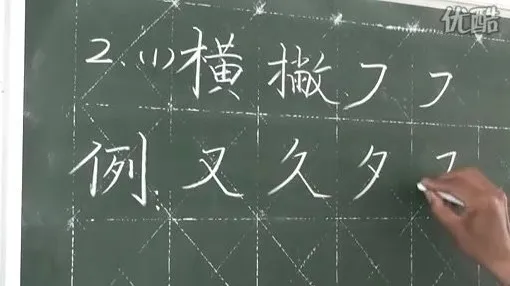 优酷
2、(1)横撇 フ フ
例:又久夕フ